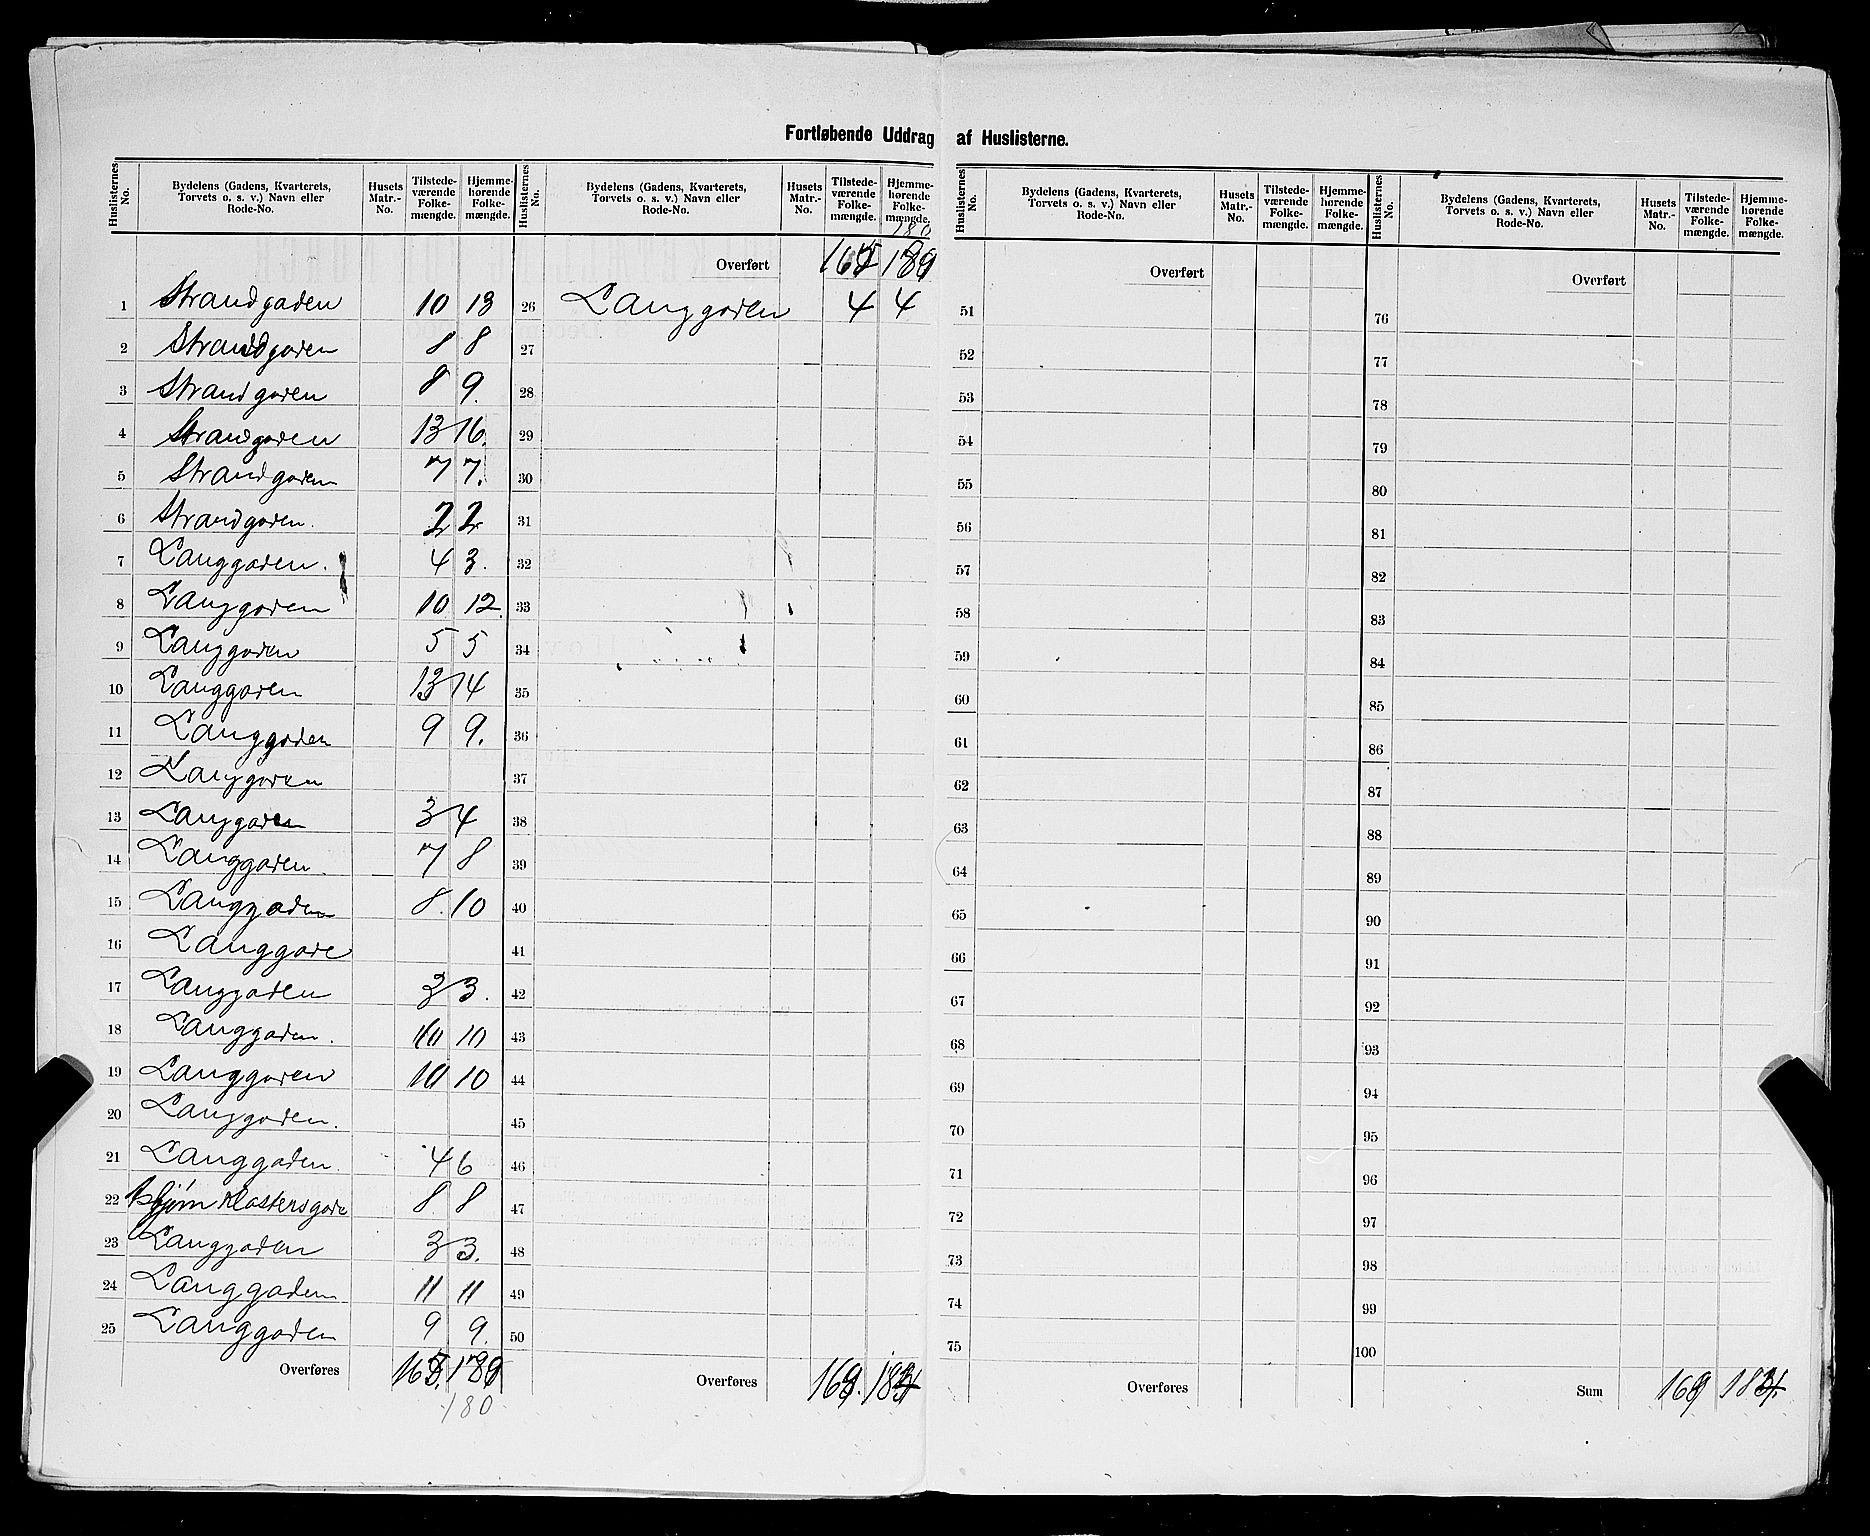 Fortløbende Uddrag af Huslisterne.
Huslisternes No. Bydelens (Gadens, Kvarterets, Torvets o. s. v.) Navn eller Rode-No. Husets Matr.-No. Tilstede-værende Folke-mængde. Hjemme-hørende Folke-mængde.
1 Strandgaden 10 13
2 Strandgaden 8 8
3 Strandgaden 8 9.
4 Strandgaden 13 16.
5 Strandgaden 7 7.
6 Strandgaden. 2 2
7 Langgaden. 4 3.
8 Langgaden 10 12.
9 Langgaden 5 5
10 Langgaden 13 14
11 Langgaden 9 9.
12 Langgaden
13 Langgaden 3 4
14 Langgaden. 7 8
15 Langgaden 8. 10
16 Langgade
17 Langgaden 3 3.
18 Langgaden. 10 10
19 Langgaden 10 10
20 Langgaden.
21 Langgaden. 4 6
22 Klostersgade 8 8
23 Langgaden 3 3.
24 Langgaden 11 11
25 Langgaden 9 9.
Overføres 165.
180
Huslisternes No. Bydelens (Gadens, Kvarterets, Torvets o. s. v.) Navn eller Rode-No. Husets Matr.-No. Tilstede-værende Folke-mængde. Hjemme-hørende Folke-mængde.
180
Overført 165
26 Langgaden 4 4
27
28
29
30
31
32
33
34
35
36
37
38
39
40
41
42
43
44
45
46
47
48
49
50
Overføres 169. 184
Huslisternes No. Bydelens (Gadens, Kvarterets, Torvets o. s. v.) Navn eller Rode-No. Husets Matr.-No. Tilstede-værende Folke-mængde. Hjemme-hørende Folke-mængde.
Overført
51
52
53
54
55
56
57
58
59
60
61
62
63
64
65
66
67
68
69
70
71
72
73
74
75
Overføres
Huslisternes No. Bydelens (Gadens, Kvarterets, Torvets o. s. v.) Navn eller Rode-No. Husets Matr.-No. Tilstede-værende Folke-mængde. Hjemme-hørende Folke-mængde.
Overført
76
77
78
79
80
81
82
83
84
85
86
87
88
89
90
91
92
93
94
95
96
97
98
99
100
Sum 169 184.